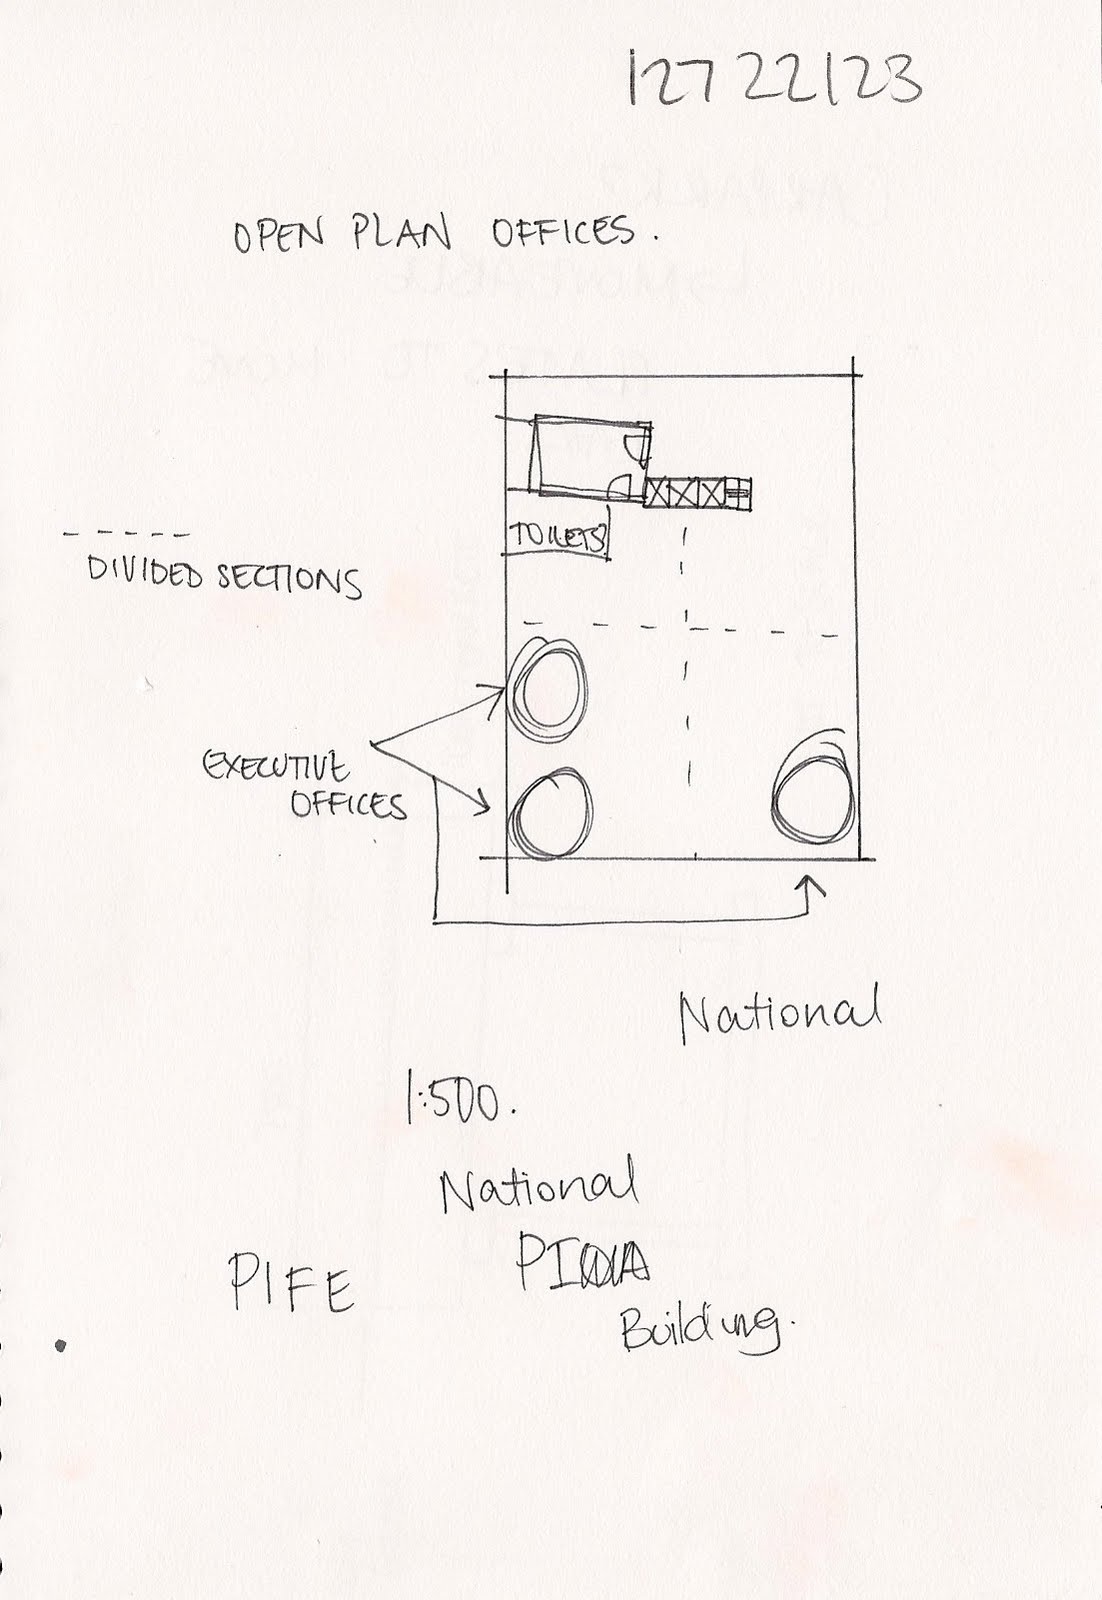 12722123
OPEN PLAN OFFICES.
TOILETS
DIVIDED SECTIONS
EXECUTIVE
OFFICES
National
1:500.
National
PIFE
Building.